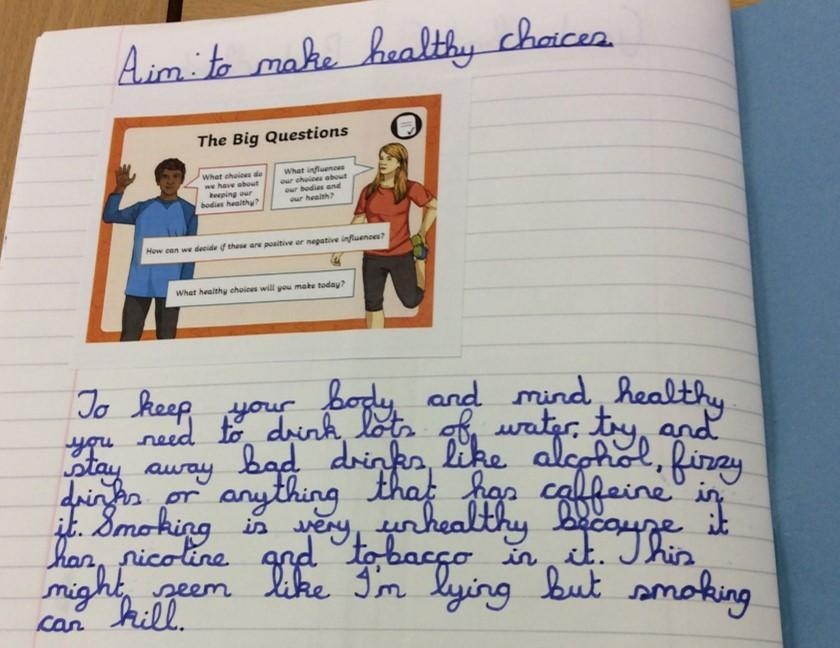 Aim: to make healthy choices.
The Big Questions
What choices do
we have about
keeping our
bodies healthy?
What influences
our choices about
our bodies and
our health?
How can we decide if these are positive or negative influences?
What healthy choices will you make today?
To keep your body and mind healthy
you need to drink lots of water, try and
stay away bad drinks, like alcohol, fizzy
drinks or anything that has caffeine in
it. Smoking is very unhealthy because it
has nicotine and tobacco in it. This
might seem like I'm lying but smoking
can kill.